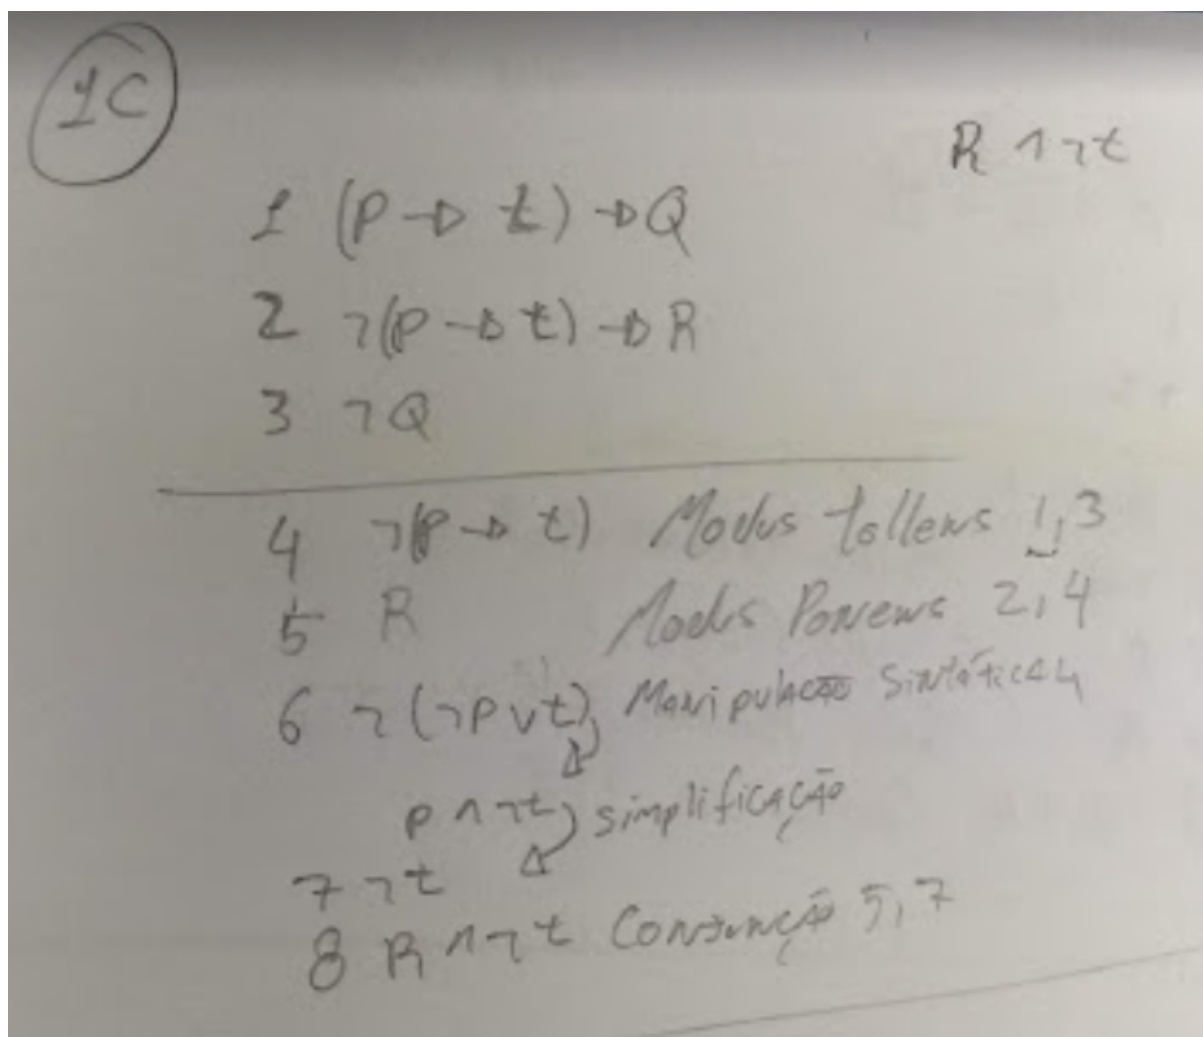 1C
R ∧ ¬t
1 (P → t) → Q
2 ¬(P → t) → R
3 ¬Q
4 ¬(P → t) Modus tollens 1,3
5 R Modus Ponens 2,4
6 ¬(¬P ∨ t) Manipulação Sintática 4
P ∧ ¬t simplificação
7 ¬t
8 R ∧ ¬t Conjunção 5,7